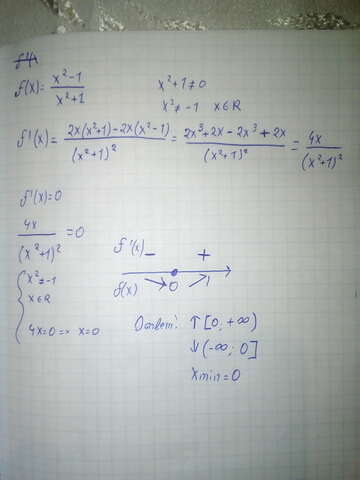 f(x) = x²-1 / x²+1
x²+1≠0
x²≠-1 x∈R
f'(x) = 2x(x²+1)-2x(x²-1) / (x²+1)² = 2x³+2x-2x³+2x / (x²+1)² = 4x / (x²+1)²
f'(x)=0
4x / (x²+1)² = 0
{ x²≠-1
x∈R
4x=0 => x=0
f'(x) - +
f(x) ↘ 0 ↗
↑ [0; +∞)
↓ (-∞; 0]
xmin = 0